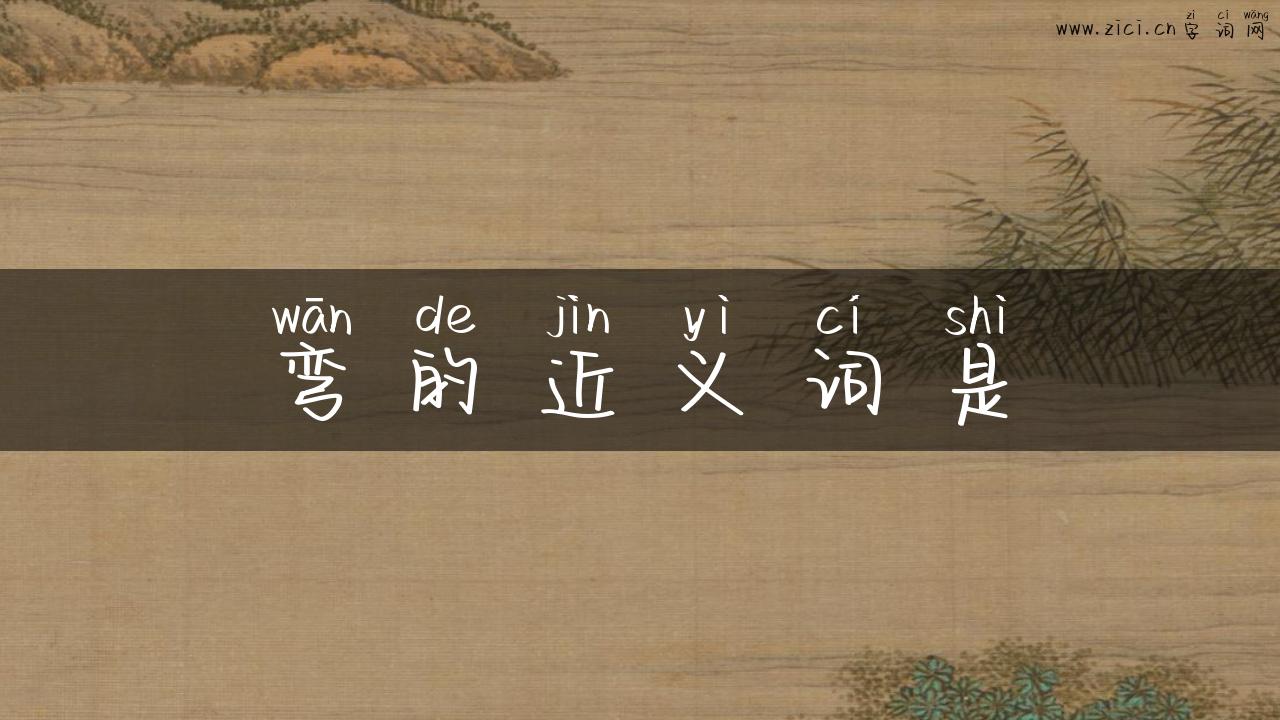 zì cí wǎng
www.zici.cn 字词网
wān de jìn yì cí shì
弯的近义词是